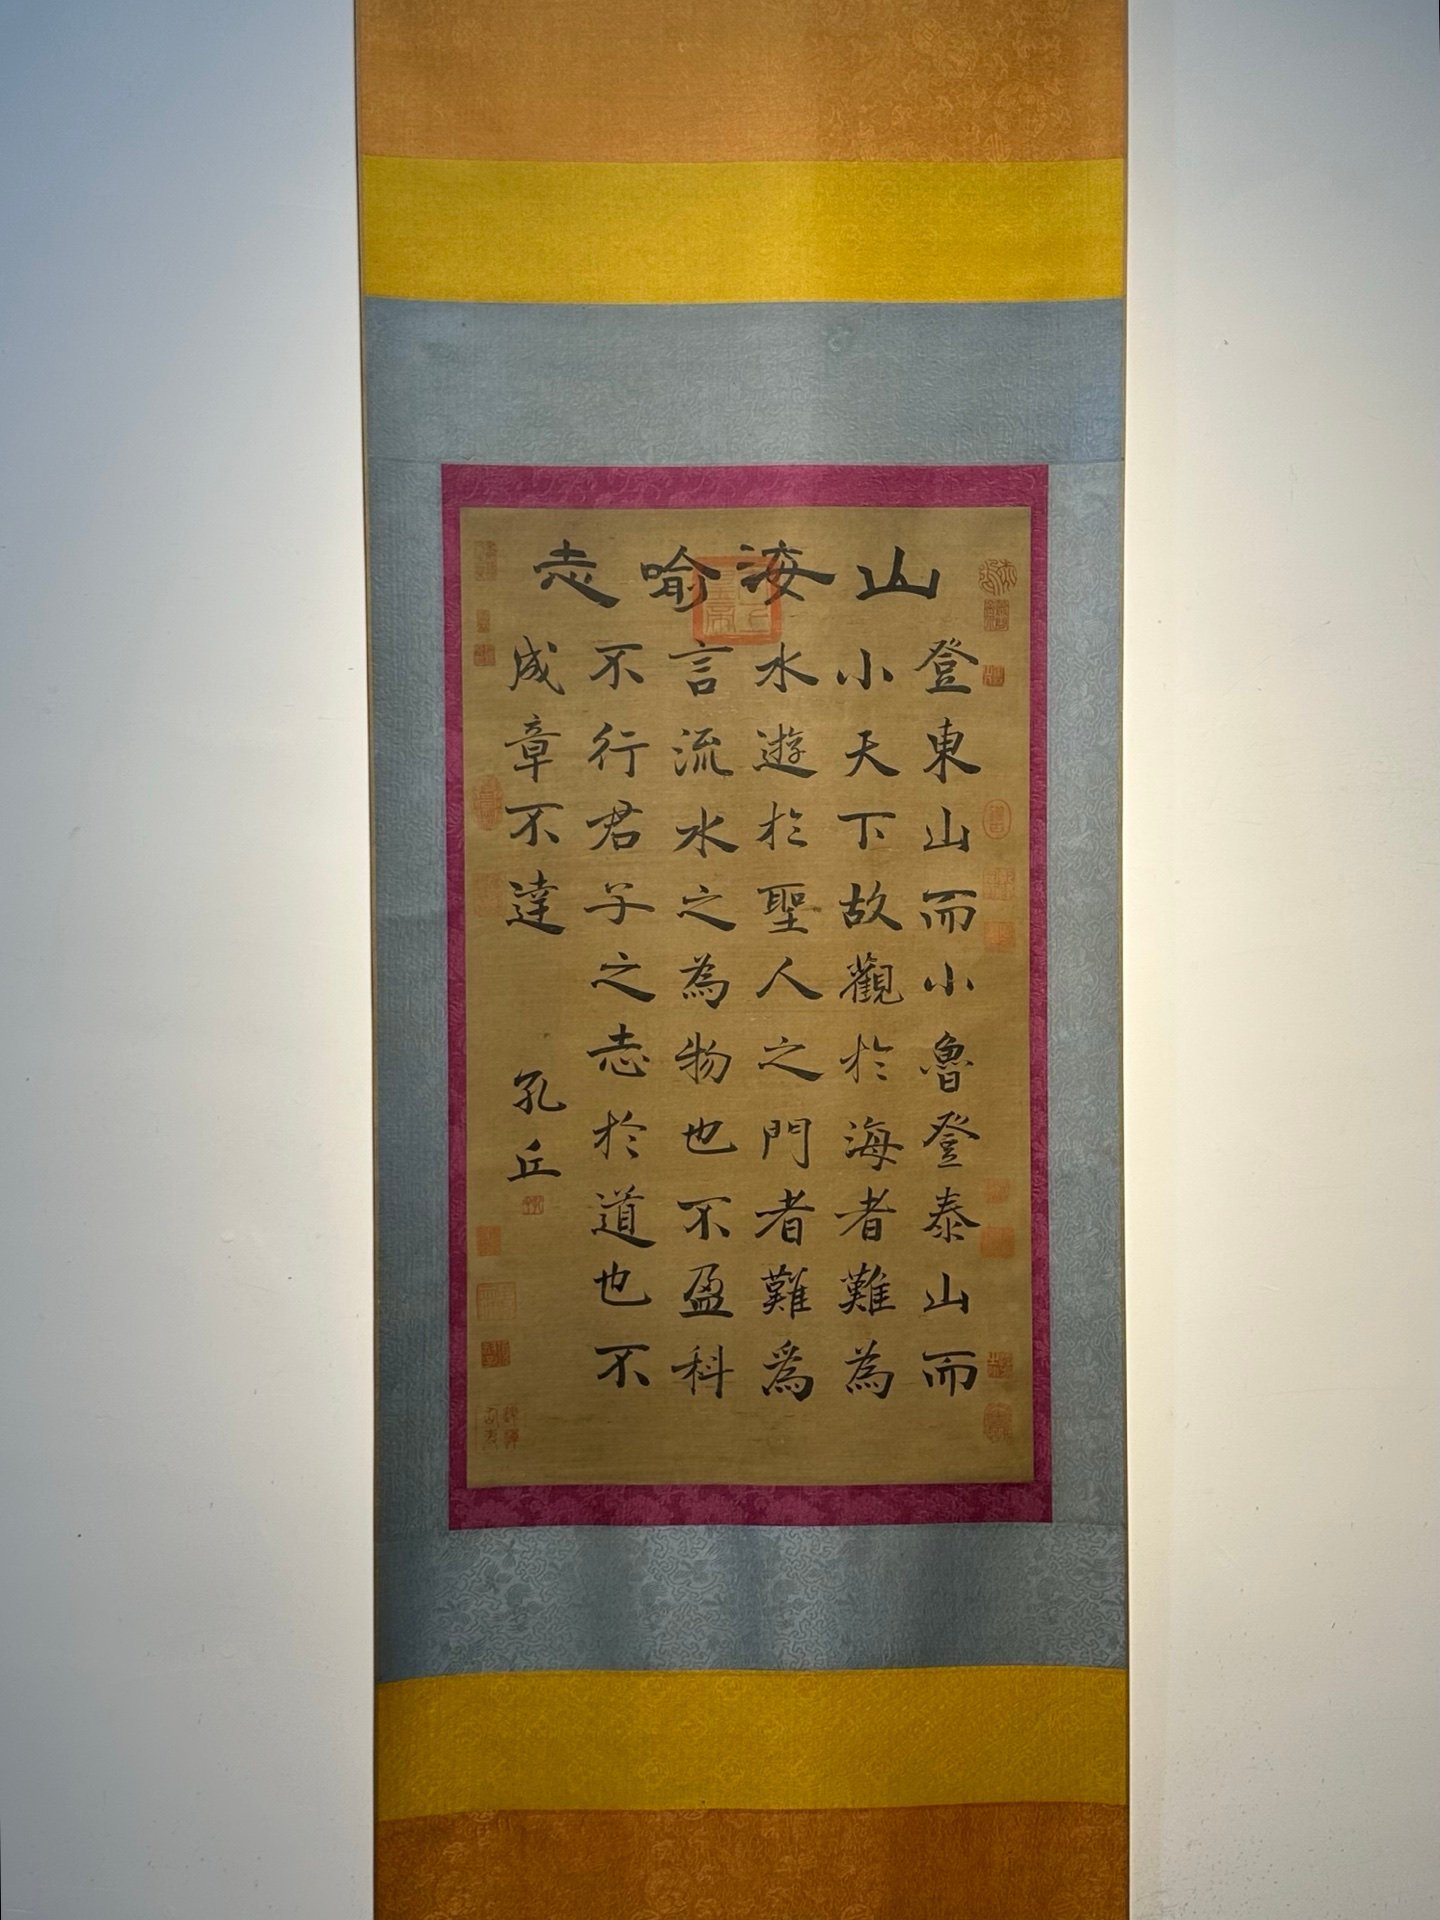 山海喻志
登東山而小魯登泰山而
小天下故觀於海者難為
水遊於聖人之門者難為
言流水之為物也不盈科
不行君子之志於道也不
成章不達
孔丘